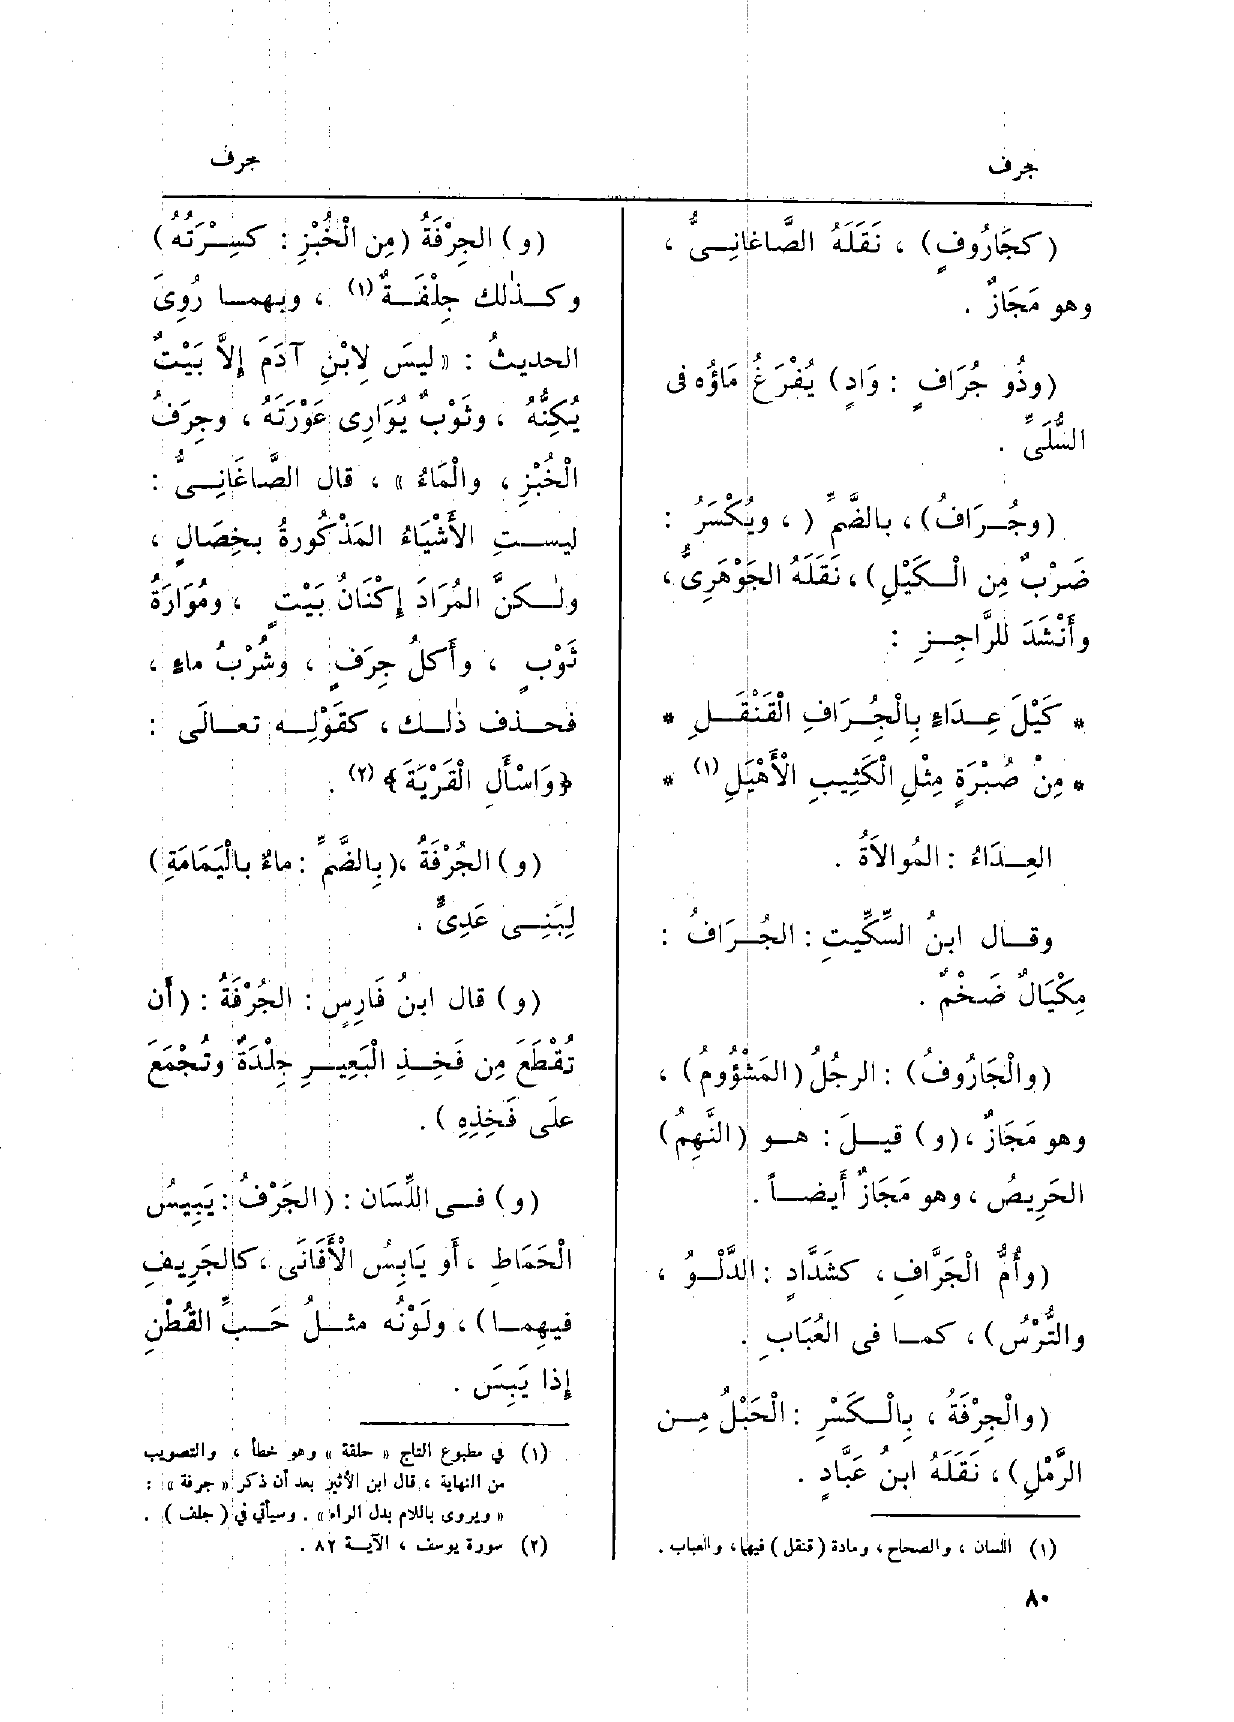 جرف
جرف
(كجَارُوفٍ) ، نَقَلَهُ الصَّاغَانِـىُّ ،
وهو مَجَازٌ .
(وذُو جُرَافٍ : وَادٍ) يُفْرَغُ مَاؤُه فى
السُّلَىِّ .
(وجُـرَافُ) ، بالضَّمِّ ( ، ويُكْسَرُ :
ضَرْبٌ مِن الْـكَيْلِ) ، نَقَلَهُ الجَوْهَرِىُّ ،
وأَنْشَدَ للرَّاجِـزِ :
* كَيْلَ عِـدَاءٍ بِالْجُـرَافِ الْقَنْقَـلِ *
* مِنْ صُبْرَةٍ مِثْلِ الْكَثِيبِ الْأَهْيَلِ (١) *
العِـدَاءُ : المُوالاَةُ .
وقـال ابنُ السِّكِّيتِ : الجُـرَافُ :
مِكْيَالٌ ضَخْمٌ .
(والْجَارُوفُ) : الرجُلُ (المَشْؤُومُ) ،
وهو مَجَازٌ ، (و) قيـلَ : هـو (النَّهِمُ)
الحَرِيصُ ، وهو مَجَازٌ أَيضـاً .
(وأُمُّ الْجَرَّافِ ، كشَدَّادٍ : الدَّلْـوُ ،
والتُّرْسُ) ، كمـا فى العُبَابِ .
(والْجِرْفَةُ ، بِالْـكَسْرِ : الْحَبْلُ مِـن
الرَّمْلِ) ، نَقَلَهُ ابنُ عَبَّادٍ .
(١) اللسان ، والصحاح ، ومادة (قنقل) فيها ، والعباب .
٨٠
(و) الجِرْفَةُ (مِن الْخُبْزِ : كِسْرَتُهُ)
وكـذٰلك جِلْفَـةٌ (١) ، وبِهمـا رُوِىَ
الحديثُ : « ليسَ لِابْنِ آدَمَ إِلاَّ بَيْتٌ
يُكِنُّهُ ، وثَوْبٌ يُوَارِى عَوْرَتَهُ ، وجِرَفُ
الْخُبْزِ ، والْمَاءُ » ، قال الصَّاغَانِـىُّ :
ليسـتِ الأَشْيَاءُ المَذْكُورةُ بخِصَالٍ ،
ولٰـكنَّ المُرَادَ إِكْنَانُ بَيْتٍ ، ومُوَارَةُ
ثَوْبٍ ، وأَكلُ جِرَفٍ ، وشُرْبُ ماءٍ ،
فحـذف ذٰلـك ، كقَوْلِـه تعـالَى :
﴿وَاسْأَلِ الْقَرْيَةَ﴾ (٢) .
(و) الجُرْفَةُ ، (بِالضَّمِّ : ماءٌ بالْيَمَامَةِ)
لِبَنِـى عَدِىٍّ .
(و) قال ابنُ فَارِسٍ : الجُرْفَةُ : (أَن
تُقْطَعَ مِن فَخِـذِ الْبَعِيـرِ جِلْدَةٌ وتُجْمَعَ
علَى فَخِذِهِ ) .
(و) فـى اللِّسَان : (الجَرْفُ : يَبِيسُ
الْحَمَاطِ ، أَو يَابِسُ الْأَفَانَى ، كالجَرِيفِ
فيهِمـا) ، ولَوْنُه مثـلُ حَـبِّ القُطْنِ
إِذا يَبِسَ .
(١) في مطبوع التاج « حلقة » وهو خطأ ، والتصويب
من النهاية ، قال ابن الأثير بعد أن ذكر « جرفة » :
« ويروى باللام بدل الراء » . وسيأتي في ( جلف ) .
(٢) سورة يوسف ، الآيـة ٨٢ .